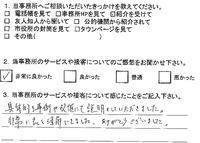 1. 当事務所へご相談いただいたきっかけを教えてください。
□ 電話帳を見て □ 事務所HPを見て □ 紹介を受けて
□ 友人知人から聞いて □ 公的機関から紹介されて
□ 市役所の封筒を見て □ タウンページを見て
□ その他( )
2. 当事務所のサービスや接客についてのご感想をお聞かせ下さい。
☑ 非常に良かった □ 良かった □ 普通 □ 悪かった
3. 当事務所のサービスや接客について感じたことをご記入下さい。
具体的な事例や数値にて説明していただきました。
非常に良く理解できました。ありがとうございました。